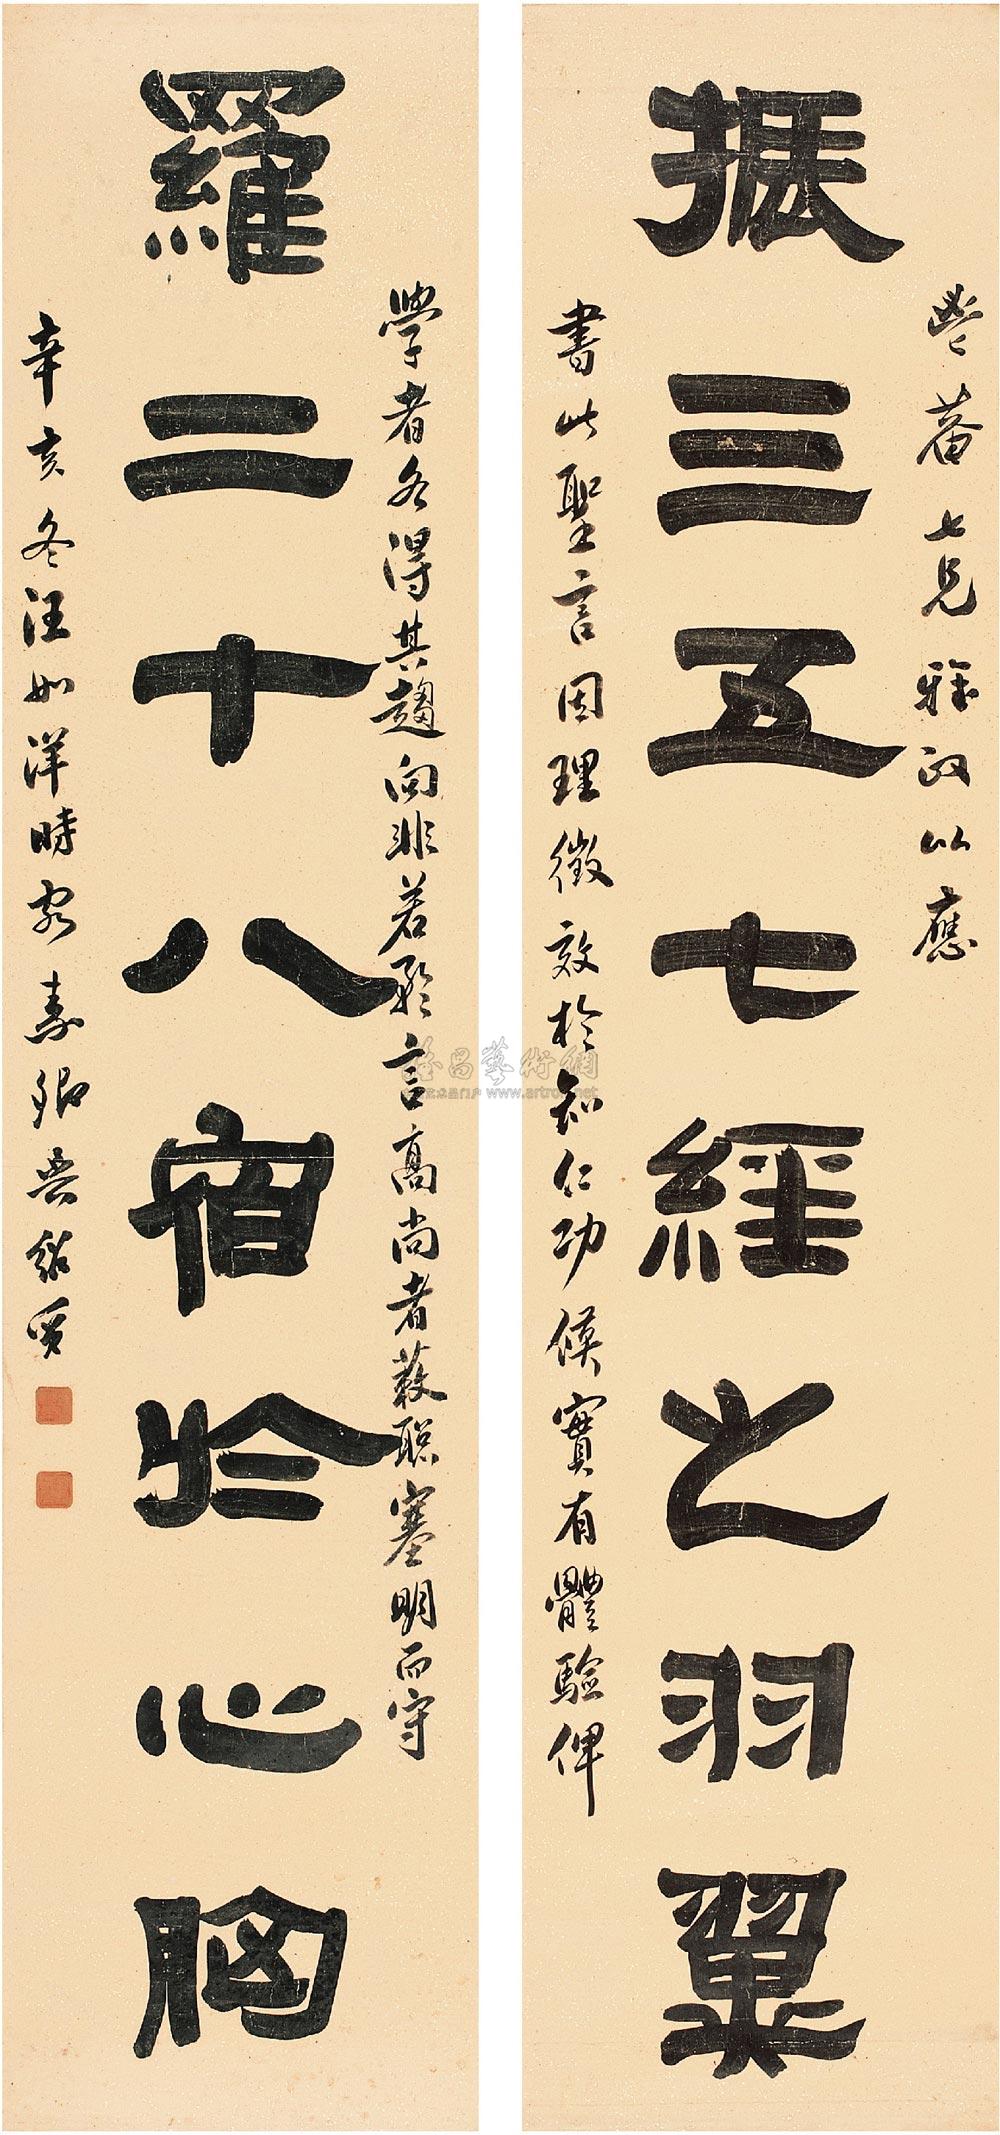 七兄雅政以應
振三五七經之羽翼
書此聖言因理徵效於知仁功候實有體驗俾
學者各得其趨向非若矜言高尚者蔽聰塞明而守
羅二十八宿於心胸
辛亥冬汪如洋時客壽卿
雅昌藝術網
www.artron.net